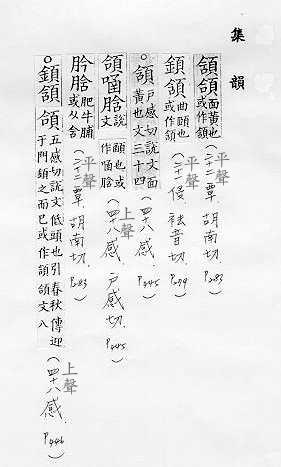 集韻
頷 面黃也或作頷 (二十二覃 胡南切 P283) 平聲
顉頷 曲頤也或作頷 (二十一侵 祛音切 P279) 平聲
頷 戶感切說文面黃也文三十四 (四十八感 P445)
頷 說文頤也或作 (四十八感 戶感切 P445) 上聲
肣 肥牛脯或从含 (二十二覃 胡南切 P283) 平聲
顉頷頜 五感切說文低頭也引春秋傳迎于門顉之而已或作頷頜文八 (四十八感 P446) 上聲